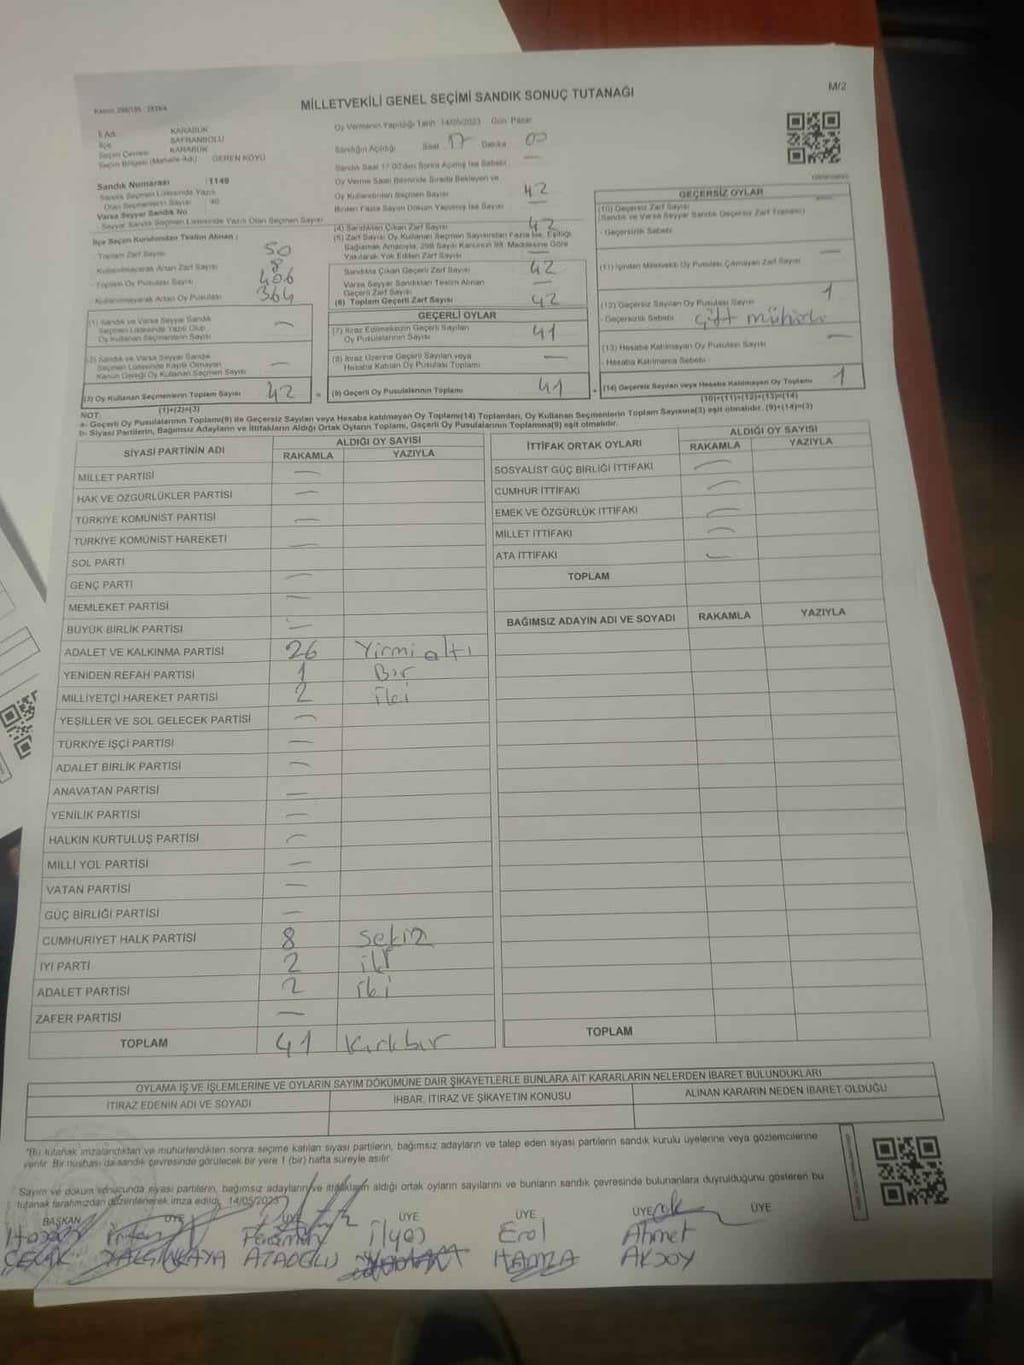 M/2
MİLLETVEKİLİ GENEL SEÇİMİ SANDIK SONUÇ TUTANAĞI
İl Adı KARABÜK
İlçe SAFRANBOLU
Seçim Çevresi KARABÜK
Seçim Bölgesi (Mahalle Adı) GEREN KÖYÜ
Sandık Numarası : 1149
Sandık Seçmen Listesinde Yazılı
Olan Seçmenlerin Sayısı
Varsa Seyyar Sandık No
Seyyar Sandık Seçmen Listesinde Yazılı Olan Seçmen Sayısı
Oy Vermenin Yapıldığı Tarih 14/05/2023 Gün Pazar
Sandığın Açıldığı Saat 17 Dakika 00
Sandık Saat 17.00'den Sonra Açılmış İse Sebebi
Oy Verme Saati Bitiminde Sırada Bekleyen ve
Oy Kullandırılan Seçmen Sayısı 42
(4) Sandıktan Çıkan Zarf Sayısı 42
İlçe Seçim Kurulundan Teslim Alınan :
Toplam Zarf Sayısı 50
Kullanılmayarak Artan Zarf Sayısı 8
Toplam Oy Pusulası Sayısı 406
Kullanılmayarak Artan Oy Pusulası 364
(1) Sandık ve Varsa Seyyar Sandık
Seçmen Listesinde Yazılı Olup
Oy Kullanan Seçmenlerin Sayısı —
(2) Sandık ve Varsa Seyyar Sandık
Seçmen Listesinde Kaydı Olmayan
Kanun Gereği Oy Kullanan Seçmen Sayısı —
(3) Oy Kullanan Seçmenlerin Toplam Sayısı 42
(1)+(2)=(3)
Sandıkta Çıkan Geçerli Zarf Sayısı 42
Varsa Seyyar Sandıktan Teslim Alınan
Geçerli Zarf Sayısı —
(6) Toplam Geçerli Zarf Sayısı 42
GEÇERLİ OYLAR
(7) İtiraz Edilmeksizin Geçerli Sayılan
Oy Pusulalarının Sayısı 41
(8) İtiraz Üzerine Geçerli Sayılan veya
Hesaba Katılan Oy Pusulası Toplamı —
(9) Geçerli Oy Pusulalarının Toplamı 41
GEÇERSİZ OYLAR
(10) Geçersiz Zarf Sayısı
(Sandık ve Varsa Seyyar Sandık Geçersiz Zarf Toplamı)
- Geçersizlik Sebebi
(11) İçinden Milletvekili Oy Pusulası Çıkmayan Zarf Sayısı —
(12) Geçersiz Sayılan Oy Pusulası Sayısı 1
- Geçersizlik Sebebi Çift mühür
(13) Hesaba Katılmayan Oy Pusulası Sayısı —
- Hesaba Katılmama Sebebi
(14) Geçersiz Sayılan veya Hesaba Katılmayan Oy Toplamı 1
(10)+(11)+(12)+(13)=(14)
NOT:
a- Geçerli Oy Pusulalarının Toplamı(9) ile Geçersiz Sayılan veya Hesaba katılmayan Oy Toplamı(14) Toplamları, Oy Kullanan Seçmenlerin Toplam Sayısına(3) eşit olmalıdır. (9)+(14)=(3)
b- Siyasi Partilerin, Bağımsız Adayların ve İttifakların Aldığı Ortak Oyların Toplamı, Geçerli Oy Pusulalarının Toplamına(9) eşit olmalıdır.
SİYASİ PARTİNİN ADI ALDIĞI OY SAYISI
RAKAMLA YAZIYLA
MİLLET PARTİSİ —
HAK VE ÖZGÜRLÜKLER PARTİSİ —
TÜRKİYE KOMÜNİST PARTİSİ —
TÜRKİYE KOMÜNİST HAREKETİ —
SOL PARTİ
GENÇ PARTİ —
MEMLEKET PARTİSİ —
BÜYÜK BİRLİK PARTİSİ —
ADALET VE KALKINMA PARTİSİ 26 Yirmialtı
YENİDEN REFAH PARTİSİ 1 Bir
MİLLİYETÇİ HAREKET PARTİSİ 2 iki
YEŞİLLER VE SOL GELECEK PARTİSİ —
TÜRKİYE İŞÇİ PARTİSİ —
ADALET BİRLİK PARTİSİ —
ANAVATAN PARTİSİ —
YENİLİK PARTİSİ —
HALKIN KURTULUŞ PARTİSİ —
MİLLİ YOL PARTİSİ —
VATAN PARTİSİ —
GÜÇ BİRLİĞİ PARTİSİ —
CUMHURİYET HALK PARTİSİ 8 sekiz
İYİ PARTİ 2 iki
ADALET PARTİSİ 2 iki
ZAFER PARTİSİ —
TOPLAM 41 Kırkbir
İTTİFAK ORTAK OYLARI ALDIĞI OY SAYISI
RAKAMLA YAZIYLA
SOSYALİST GÜÇ BİRLİĞİ İTTİFAKI —
CUMHUR İTTİFAKI —
EMEK VE ÖZGÜRLÜK İTTİFAKI —
MİLLET İTTİFAKI —
ATA İTTİFAKI —
TOPLAM
BAĞIMSIZ ADAYIN ADI VE SOYADI RAKAMLA YAZIYLA
TOPLAM
OYLAMA İŞ VE İŞLEMLERİNE VE OYLARIN SAYIM DÖKÜMÜNE DAİR ŞİKAYETLERLE BUNLARA AİT KARARLARIN NELERDEN İBARET BULUNDUKLARI
İTİRAZ EDENİN ADI VE SOYADI İHBAR, İTİRAZ VE ŞİKAYETİN KONUSU ALINAN KARARIN NEDEN İBARET OLDUĞU
"Bu tutanak imzalandıktan ve mühürlendikten sonra seçime katılan siyasi partilerin, bağımsız adayların ve talep eden siyasi partilerin sandık kurulu üyelerine veya gözlemcilerine
verilir. Bir nüshası da sandık çevresinde görülecek bir yere 1 (bir) hafta süreyle asılır.
Sayım ve döküm sonucunda siyasi partilerin, bağımsız adayların ve ittifakların aldığı ortak oyların sayılarını ve bunların sandık çevresinde bulunanlara duyurulduğunu gösteren bu
tutanak tarafımızdan düzenlenerek imza edildi. 14/05/2023
BAŞKAN ÜYE ÜYE ÜYE ÜYE ÜYE ÜYE
Hasan İlyas Erol Ahmet
ÇELİK YALÇINKAYA ATAOĞLU HAMZA AKSOY